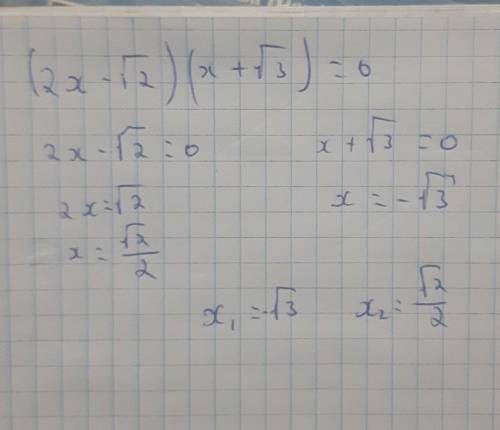 (2x - √2)(x + √3) = 0
2x - √2 = 0
x + √3 = 0
2x = √2
x = -√3
x = √2/2
x₁ = -√3
x₂ = √2/2